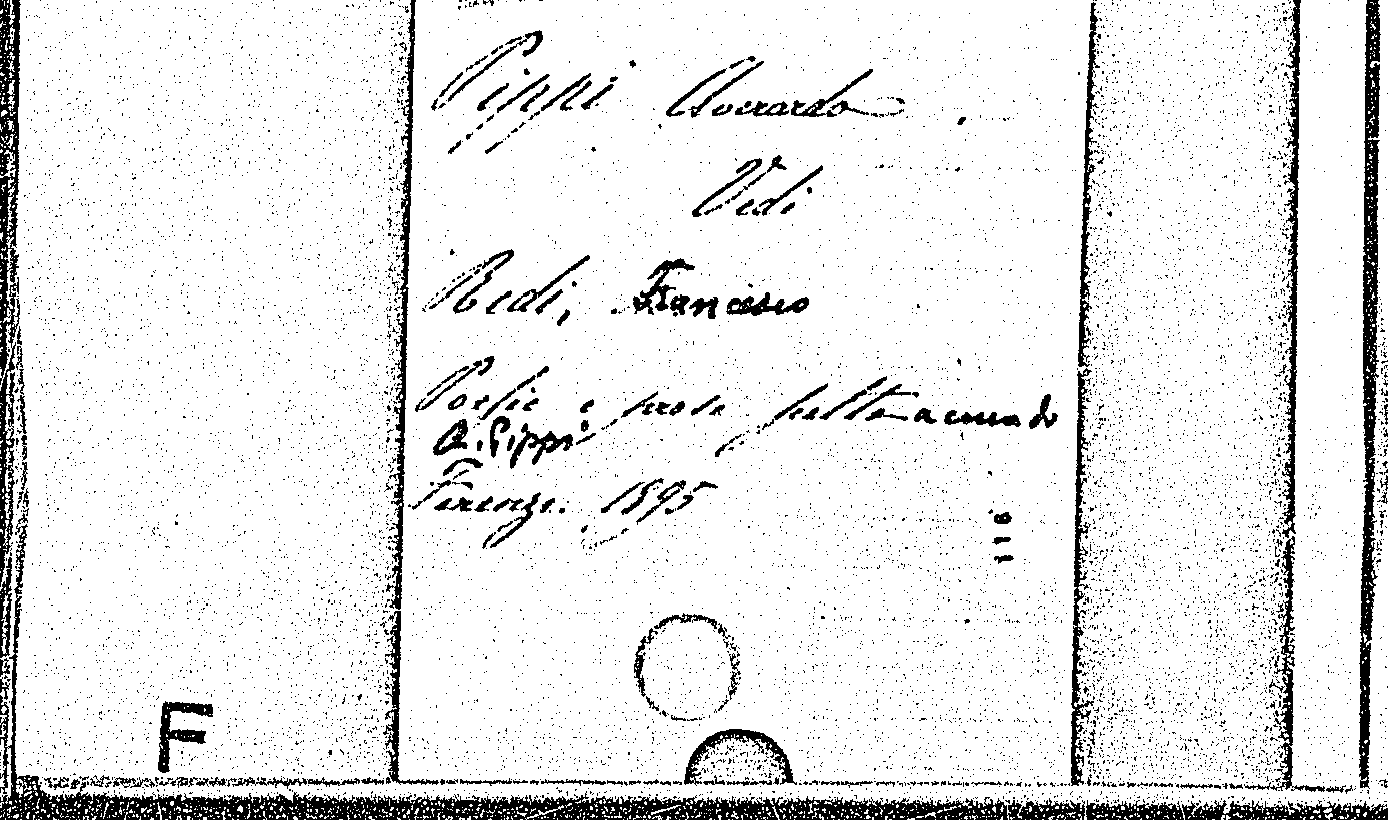 Pippi Averardo
Vedi
Redi, Francesco
Poesie e prose scelte a cura di
A. Pippi
Firenze. 1895
116
F